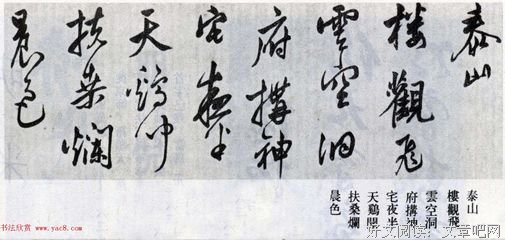 泰山
樓觀飛
雲空洞
府搆神
宅夜半
天鷄聞
扶桑爛
晨色
泰山
樓觀飛
雲空洞
府搆神
宅夜半
天鷄聞
扶桑爛
晨色
书法欣赏 www.yac8.com
好文阅读，文章吧网